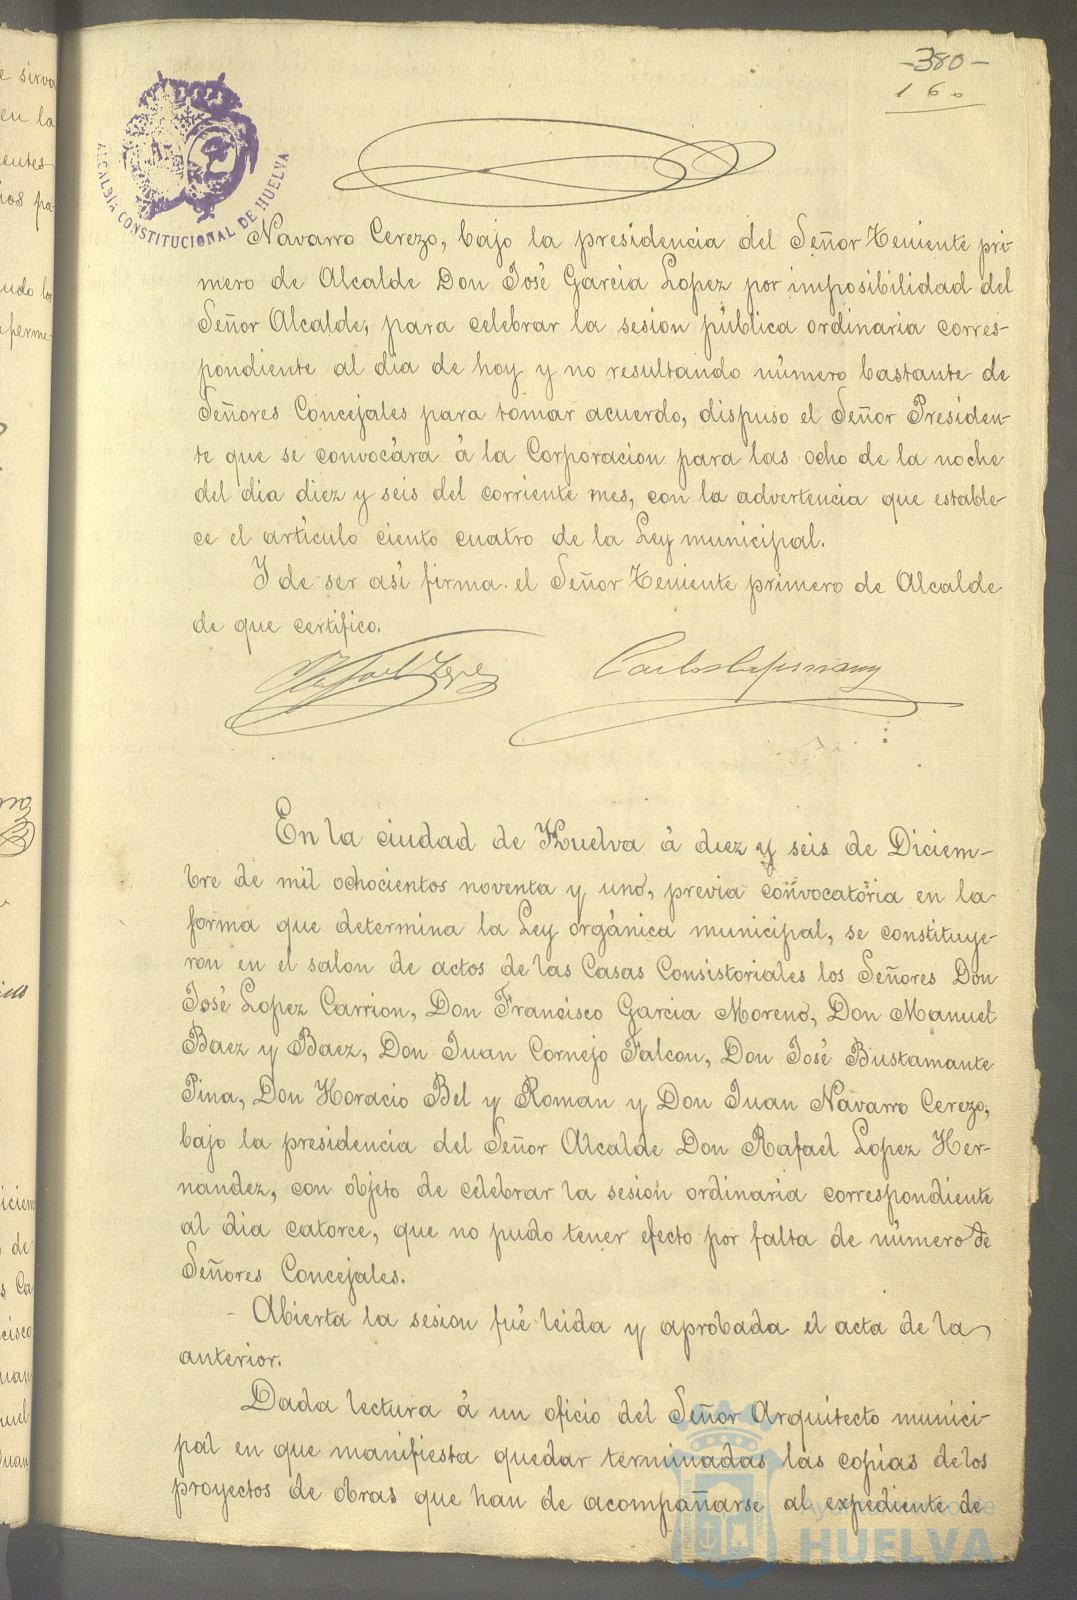 -380-
160
ALCALDÍA CONSTITUCIONAL DE HUELVA
Navarro Cerezo, bajo la presidencia del Señor Teniente pri-
mero de Alcalde Don José Garcia Lopez por imposibilidad del
Señor Alcalde, para celebrar la sesion pública ordinaria corres-
pondiente al dia de hoy y no resultando número bastante de
Señores Concejales para tomar acuerdo, dispuso el Señor Presiden-
te que se convocára á la Corporacion para las ocho de la noche
del dia diez y seis del corriente mes, con la advertencia que estable-
ce el artículo ciento cuatro de la Ley municipal.
Y de ser así firma el Señor Teniente primero de Alcalde
de que certifico.
En la ciudad de Huelva á diez y seis de Diciem-
bre de mil ochocientos noventa y uno, previa convocatoria en la
forma que determina la Ley orgánica municipal, se constituye-
ron en el salon de actos de las Casas Consistoriales los Señores Don
José Lopez Carrion, Don Francisco Garcia Moreno, Don Manuel
Baez y Baez, Don Juan Cornejo Falcon, Don José Bustamante
Pina, Don Horacio Bel y Roman y Don Juan Navarro Cerezo,
bajo la presidencia del Señor Alcalde Don Rafael Lopez Her-
nandez, con objeto de celebrar la sesion ordinaria correspondiente
al dia catorce, que no pudo tener efecto por falta de número de
Señores Concejales.
- Abierta la sesion fué leida y aprobada el acta de la
anterior.
Dada lectura á un oficio del Señor Arquitecto munici-
pal en que manifiesta quedar terminadas las copias de los
proyectos de obras que han de acompañarse al expediente de
Ayuntamiento de
HUELVA